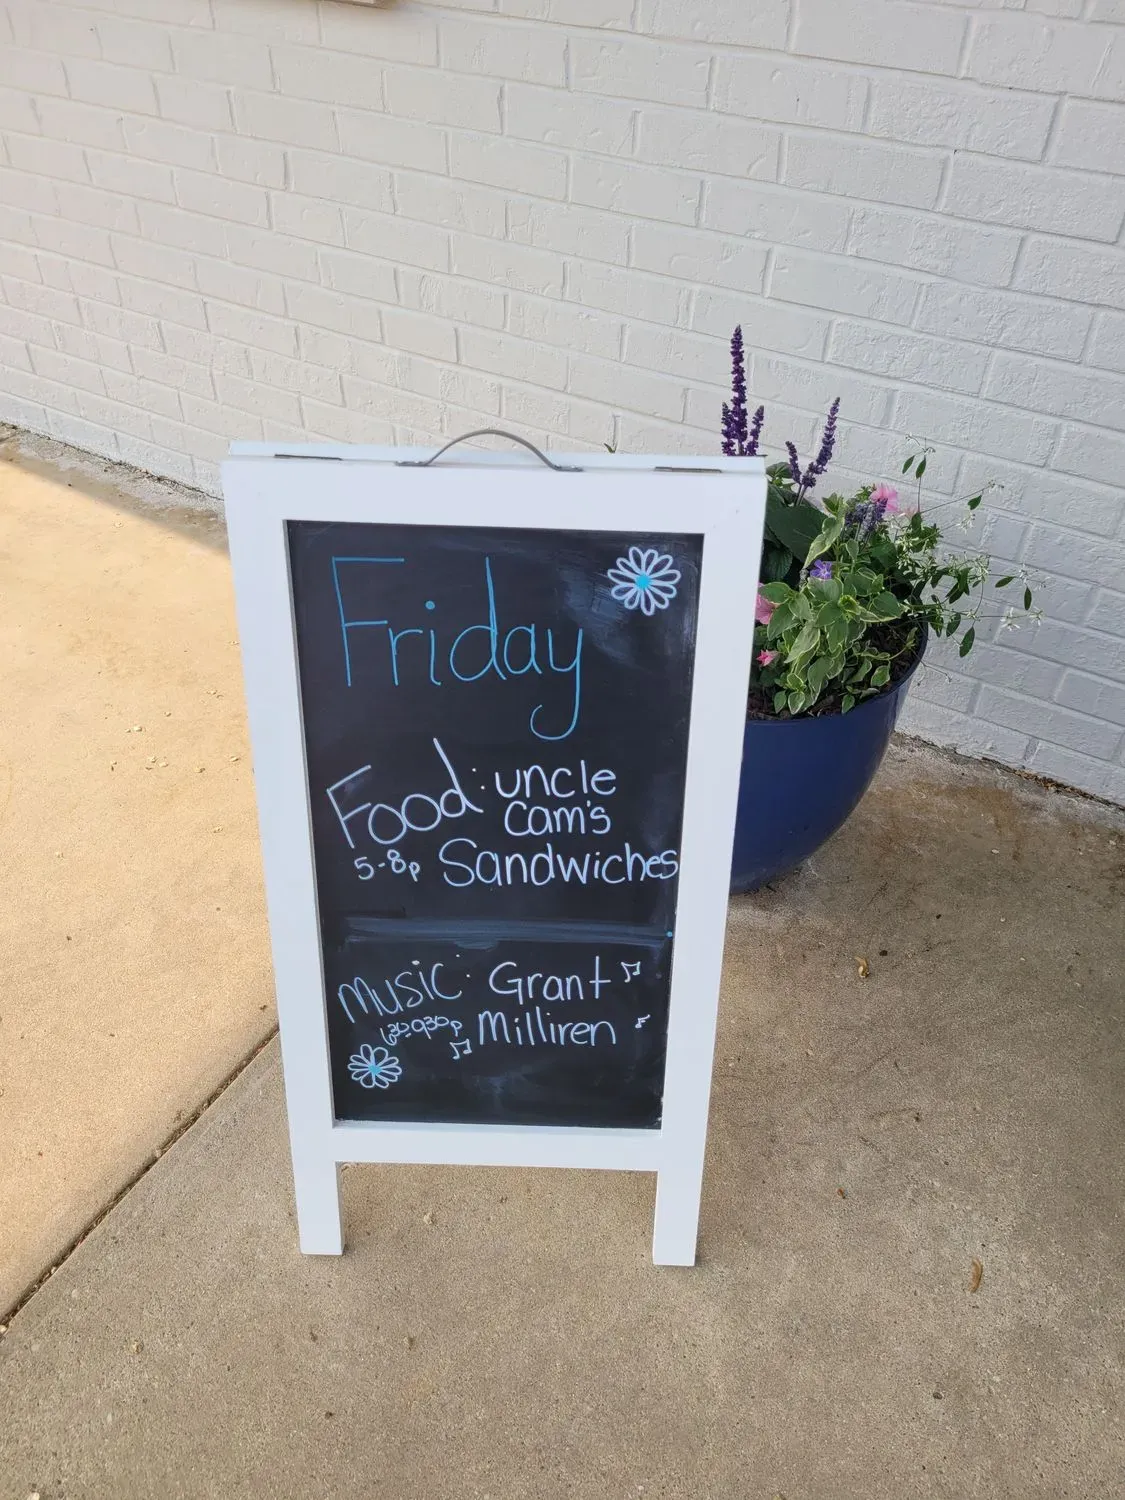 Friday
Food: uncle
Cam's
5-8p Sandwiches
Music: Grant
630-930p Milliren